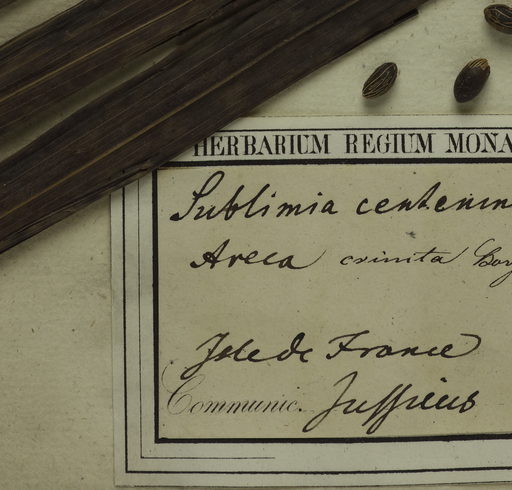 HERBARIUM REGIUM MONA
Sublimia centenin
Areca crinita Bory
Isle de France
Communic. Jussieus